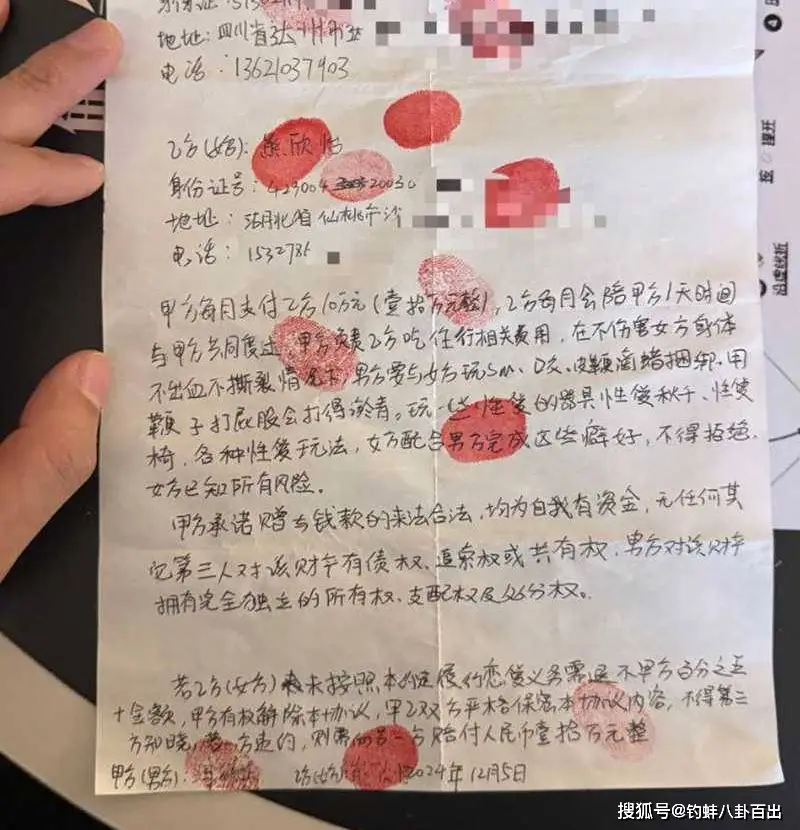 地址:四川省达州市
电话:13621037903
乙方(女方):
身份证号:429004 20030
地址:湖北省仙桃市沙
电话:1532785
甲方每月支付乙方10万元(壹拾万元整),乙方每月会陪甲方1天时间
与甲方共同度过,甲方负责乙方吃住行相关费用,在不伤害女方身体
不出血不撕裂情况下,男方要与女方玩sm、口交、皮鞭滴蜡捆绑、用
鞭子打屁股会打得淤青。玩一些性爱的器具性爱秋千、性爱
椅,各种性爱玩法,女方配合男方完成这些癖好,不得拒绝.
女方已知所有风险。
甲方承诺赠与钱款的来法合法,均为自我有资金,无任何其
它第三人对该财产有债权、追索权或共有权,男方对该财产
拥有完全独立的所有权、支配权及处分权。
若乙方(女方)未按照本约定履行恋爱义务需退还甲方百分之五
十金额,甲方有权解除本协议,甲乙双方严格保密本协议内容,不得第三
方知晓,若一方违约,则需向另一方赔付人民币壹拾万元整
甲方(男方): 乙方(女方): 2024年12月5日
搜狐号@钓蚌八卦百出